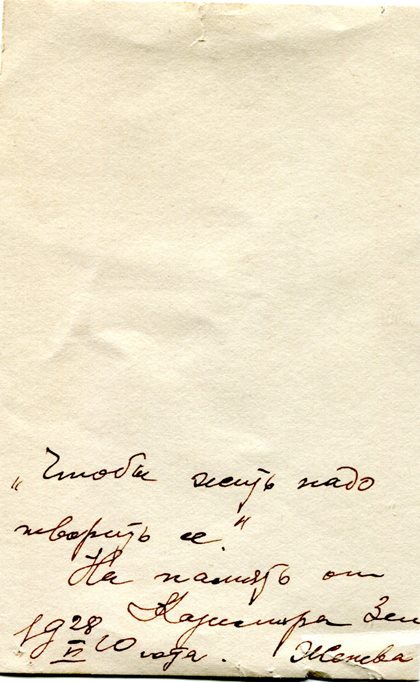 „Чтобы жить надо
творить ее."
На память от
Казимира Зем
19 28/VI 10 года. Женева